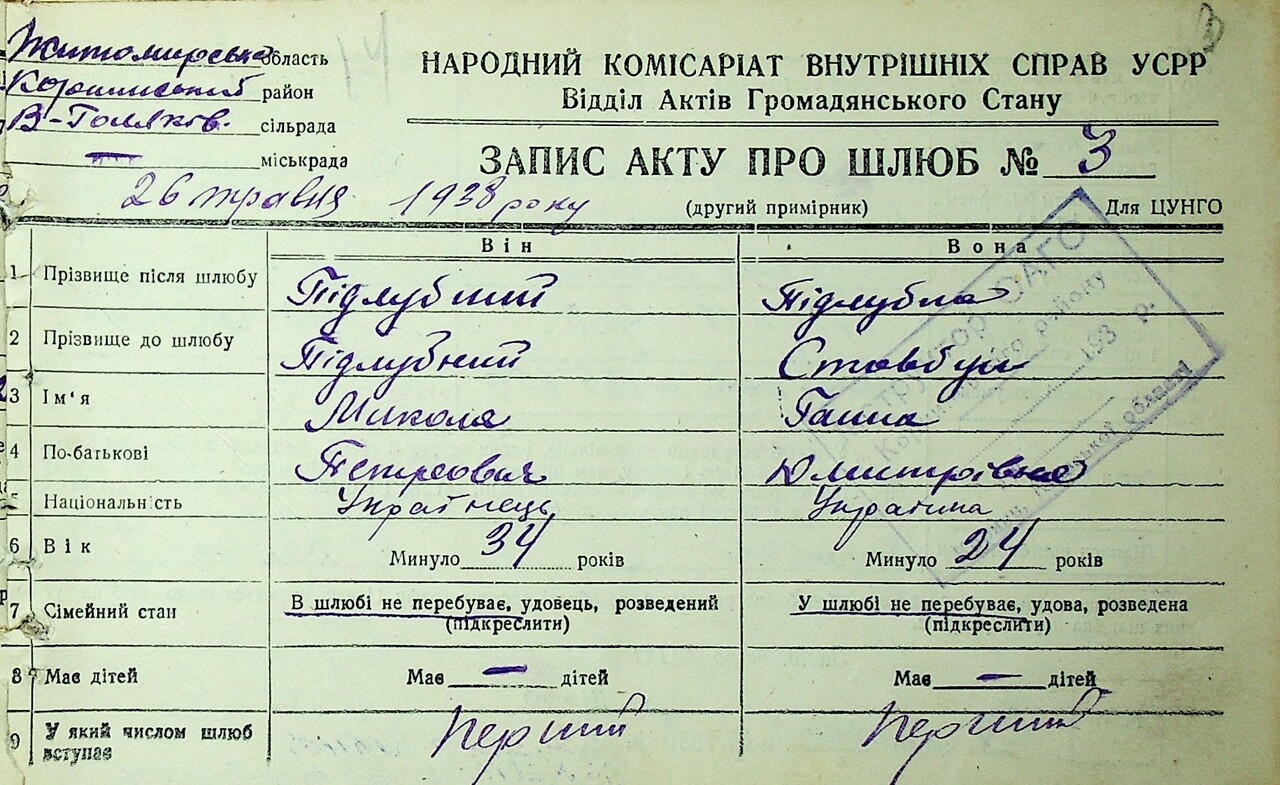 Житомирська область
Коростишівський район
В-Голяків. сільрада
— міськрада
НАРОДНИЙ КОМІСАРІАТ ВНУТРІШНІХ СПРАВ УСРР
Відділ Актів Громадянського Стану
ЗАПИС АКТУ ПРО ШЛЮБ № 3
26 травня 1938 року
(другий примірник) Для ЦУНГО
Він Вона
1 Прізвище після шлюбу Підлубний Підлубна
2 Прізвище до шлюбу Підлубний Стовбун
3 Ім'я Микола Ганна
4 По-батькові Петрович Дмитрівна
5 Національність Українець Українка
6 Вік Минуло 34 років Минуло 24 років
7 Сімейний стан В шлюбі не перебуває, удовець, розведений У шлюбі не перебуває, удова, розведена
(підкреслити) (підкреслити)
8 Має дітей Має — дітей Має — дітей
9 У який числом шлюб вступає Перший Перший
193 р.
області